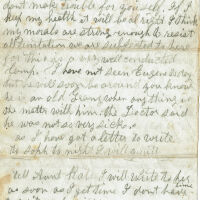 dont make trouble for yourself. If I
keep my health it will be all right I think
my morals are strong enough to resist
all temtation we are subjected to here
for this is a very well conducted
Camp. I have not seen Eugene to day
but he will soon be around you know
he is an old Trump when any thing is
the matter with him. the Doctor said
he was not so very sick.
as I have got a letter to write
to soph to night I will quit
tell Aunt Kate I will write to her
as soon as I get time I dont have
time